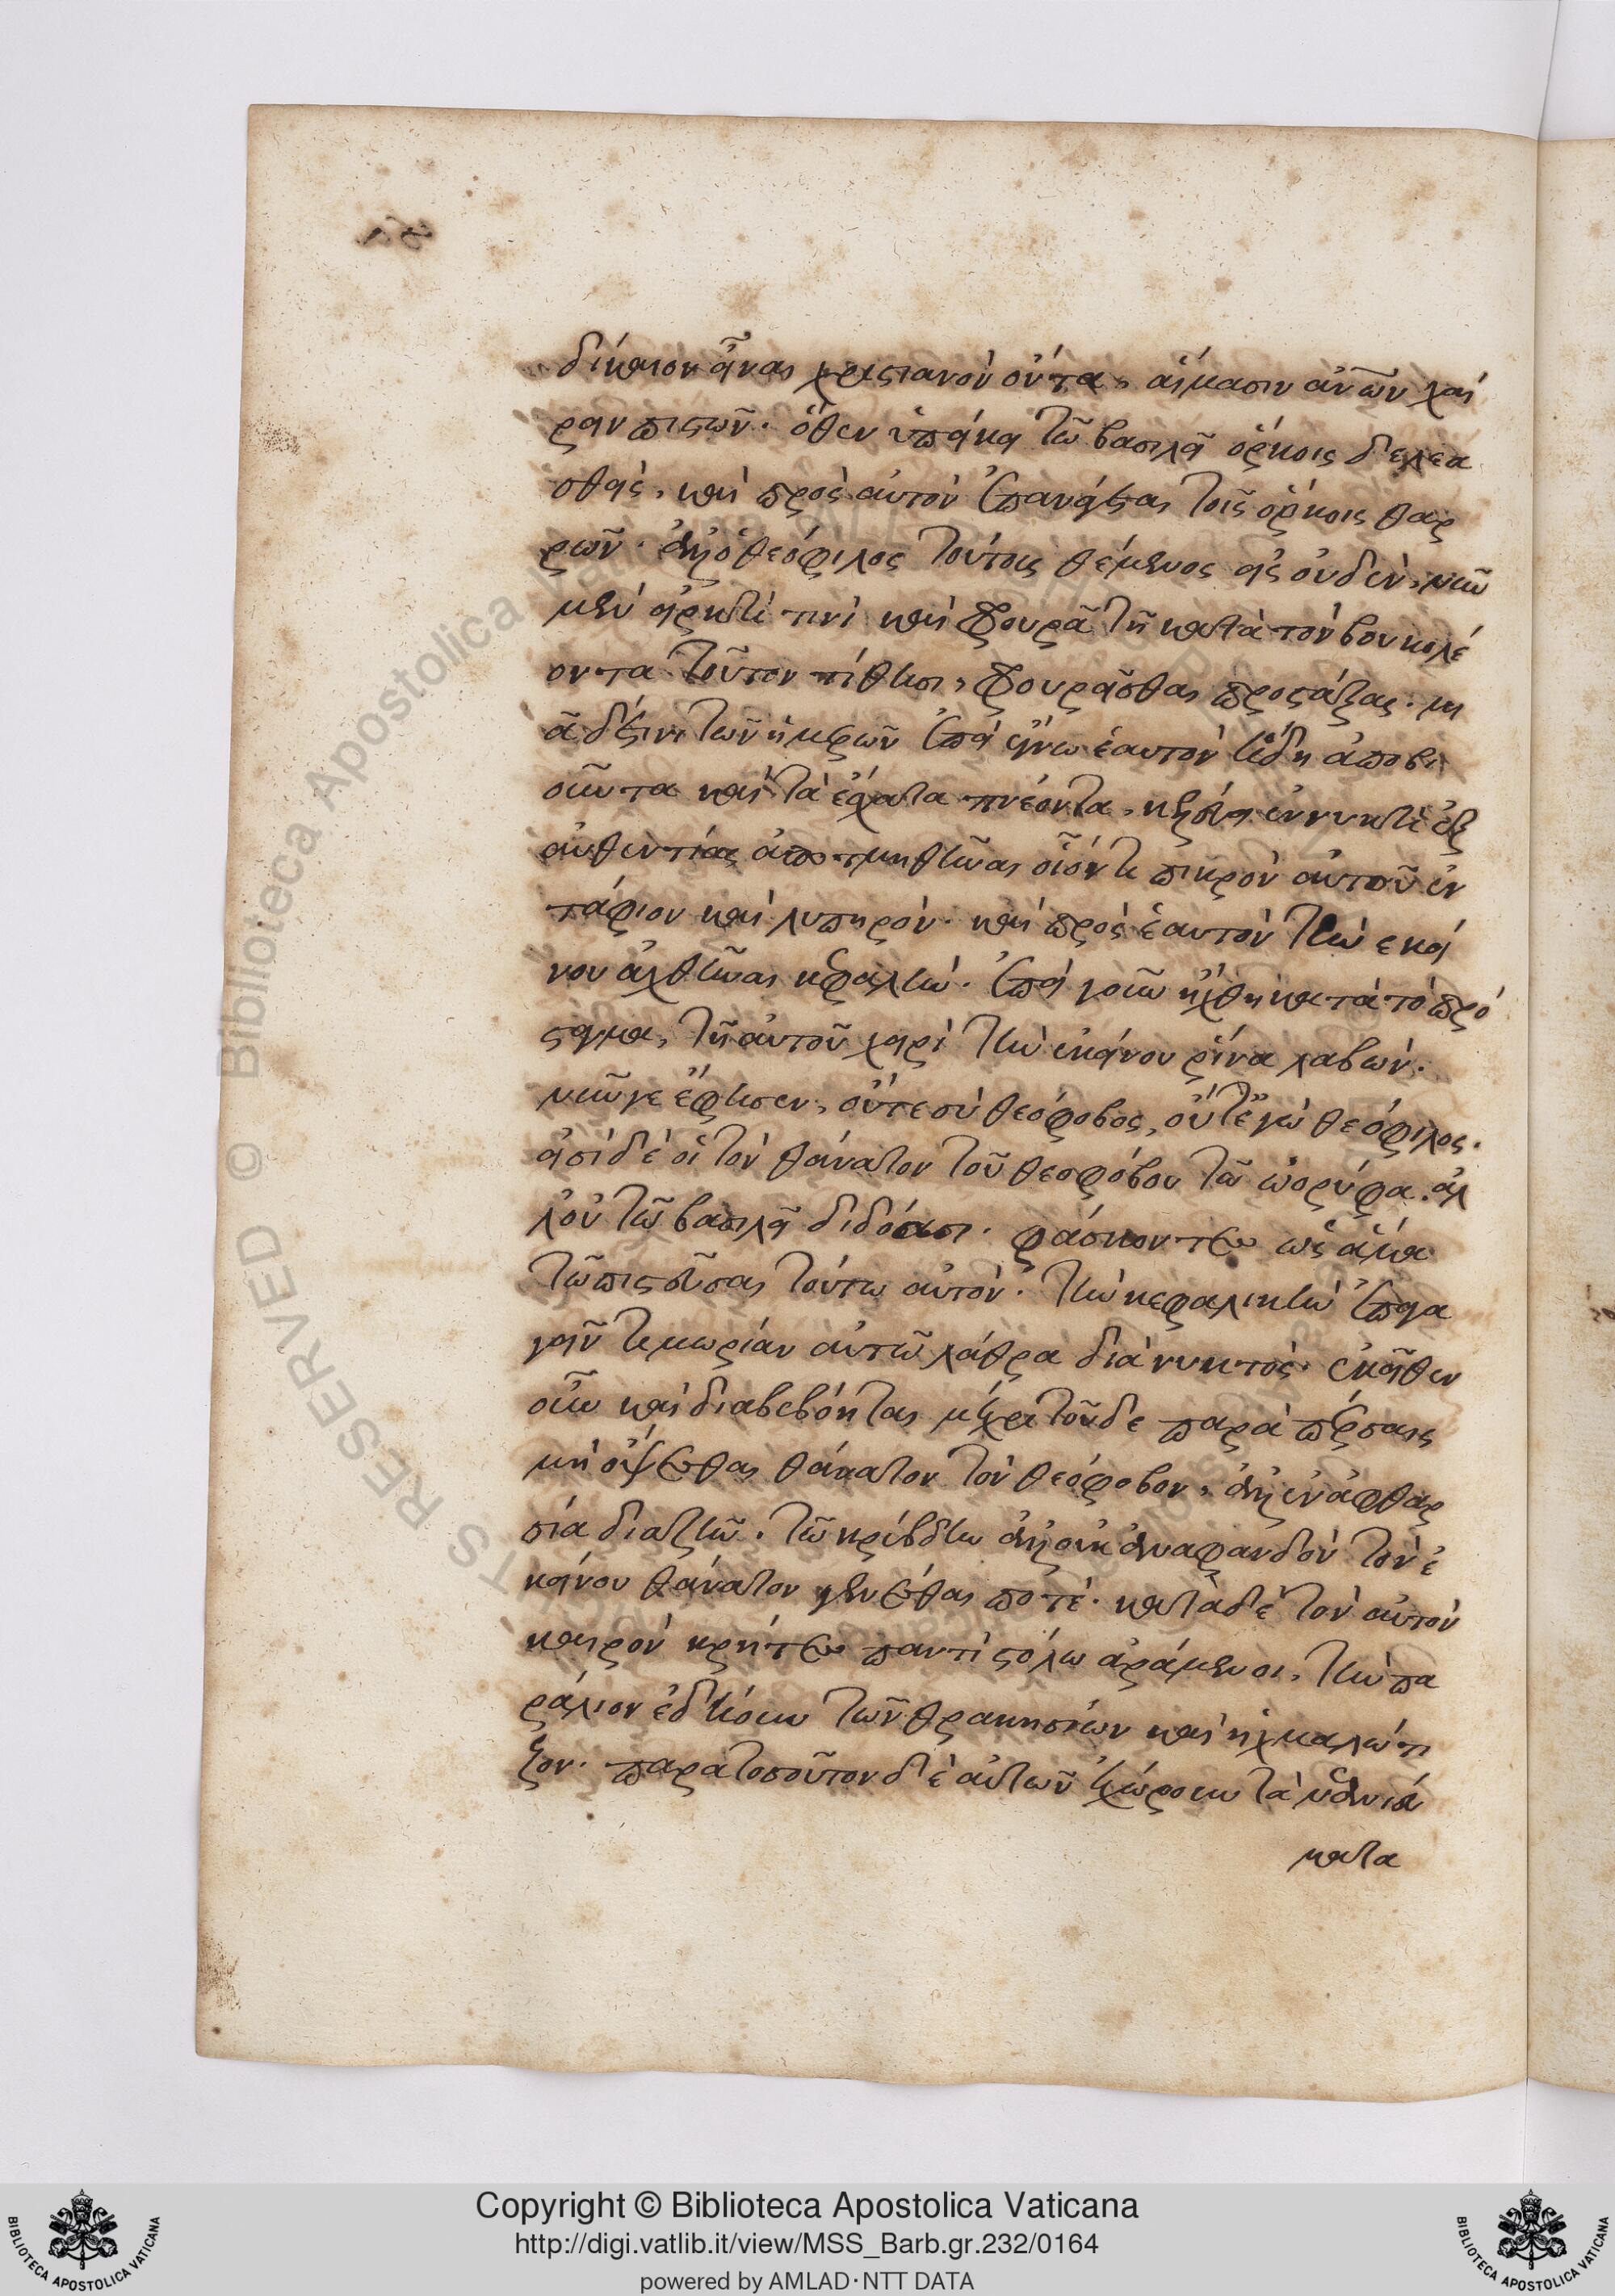 δίκαιον εἶναι χριστιανὸν ὄντα, αἵμασιν ἀνθρώπων χαί
ρειν πιστῶν. ὅθεν ὑπείκει τῶ βασιλεῖ ὅρκοις δελεα
σθεὶς, καὶ πρὸς αὐτὸν ἐπανήξας τοῖς ὅρκοις θαρ
ρῶν. ἀλλ' ὁ θεόφιλος τούτοις θέμενος εἰς οὐδὲν, νῦν
μὲν εἱρκτῆ τινὶ καὶ φρουρᾶ τῆ κατὰ τὸν βουκολέ
οντα τοῦτον τίθησι, φρουρεῖσθαι προστάξας. μι
ᾶ δέ τινι τῶν ἡμερῶν ἐπεὶ ἔγνω ἑαυτὸν ἤδη ἀποβι
οῦντα καὶ τὰ ἔσχατα πνέοντα, κελεύει ἐν νυκτὶ ἐξ
αὐθεντίας ἀποτμηθῆναι οἷόν τι πικρὸν αὐτοῦ ἐν
τάφιον καὶ λυπηρόν. καὶ πρὸς ἑαυτὸν τὴν εκεί
νου ἀχθῆναι κεφαλήν. ἐπεὶ γοῦν ἤχθη κατὰ τὸ πρό
σταγμα, τῆ αὐτοῦ χειρὶ τὴν ἐκείνου ῥίνα λαβὼν.
νῦν γε ἔφησεν, οὔτε σὺ θεόφοβος, οὔτ' ἐγὼ θεόφιλος.
εἰσὶ δὲ οἳ τὸν θάνατον τοῦ θεοφόβου τῶ ὠορύφα. ἀλ
λ' οὐ τῶ βασιλεῖ διδόασι. φάσκοντες ὡς ἅμα
τῶ πιστεῦσαι τούτω αὐτὸν. τὴν κεφαλικὴν ἐπαγα
γεῖν τιμωρίαν αὐτῶ λάθρα διὰ νυκτός. ἐκεῖθεν
οὖν καὶ διαβεβόηται μέχρι τοῦδε παρὰ πέρσαις
μὴ ὄψεσθαι θάνατον τὸν θεόφοβον, ἀλλ' ἐν ἀφθαρ
σία διαζῆν. τῶ κρύβδην ἀλλ' οὐκ ἀναφανδὸν τὸν ἐ
κείνου θάνατον γενέσθαι ποτέ. κατὰ δὲ τὸν αὐτὸν
καιρὸν κρῆτες παντὶ στόλω ἀράμενοι, τὴν πα
ράλιον ἐδήουν τῶν θρακησίων καὶ ἠχμαλώτι
ζον. παρα τοσοῦτον δὲ αὐτῶν ἐχώρουν τὰ νεανιεύ
ματα